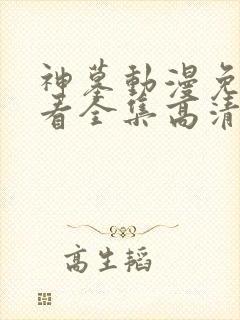 神墓動漫免
看全集高清
高生韬